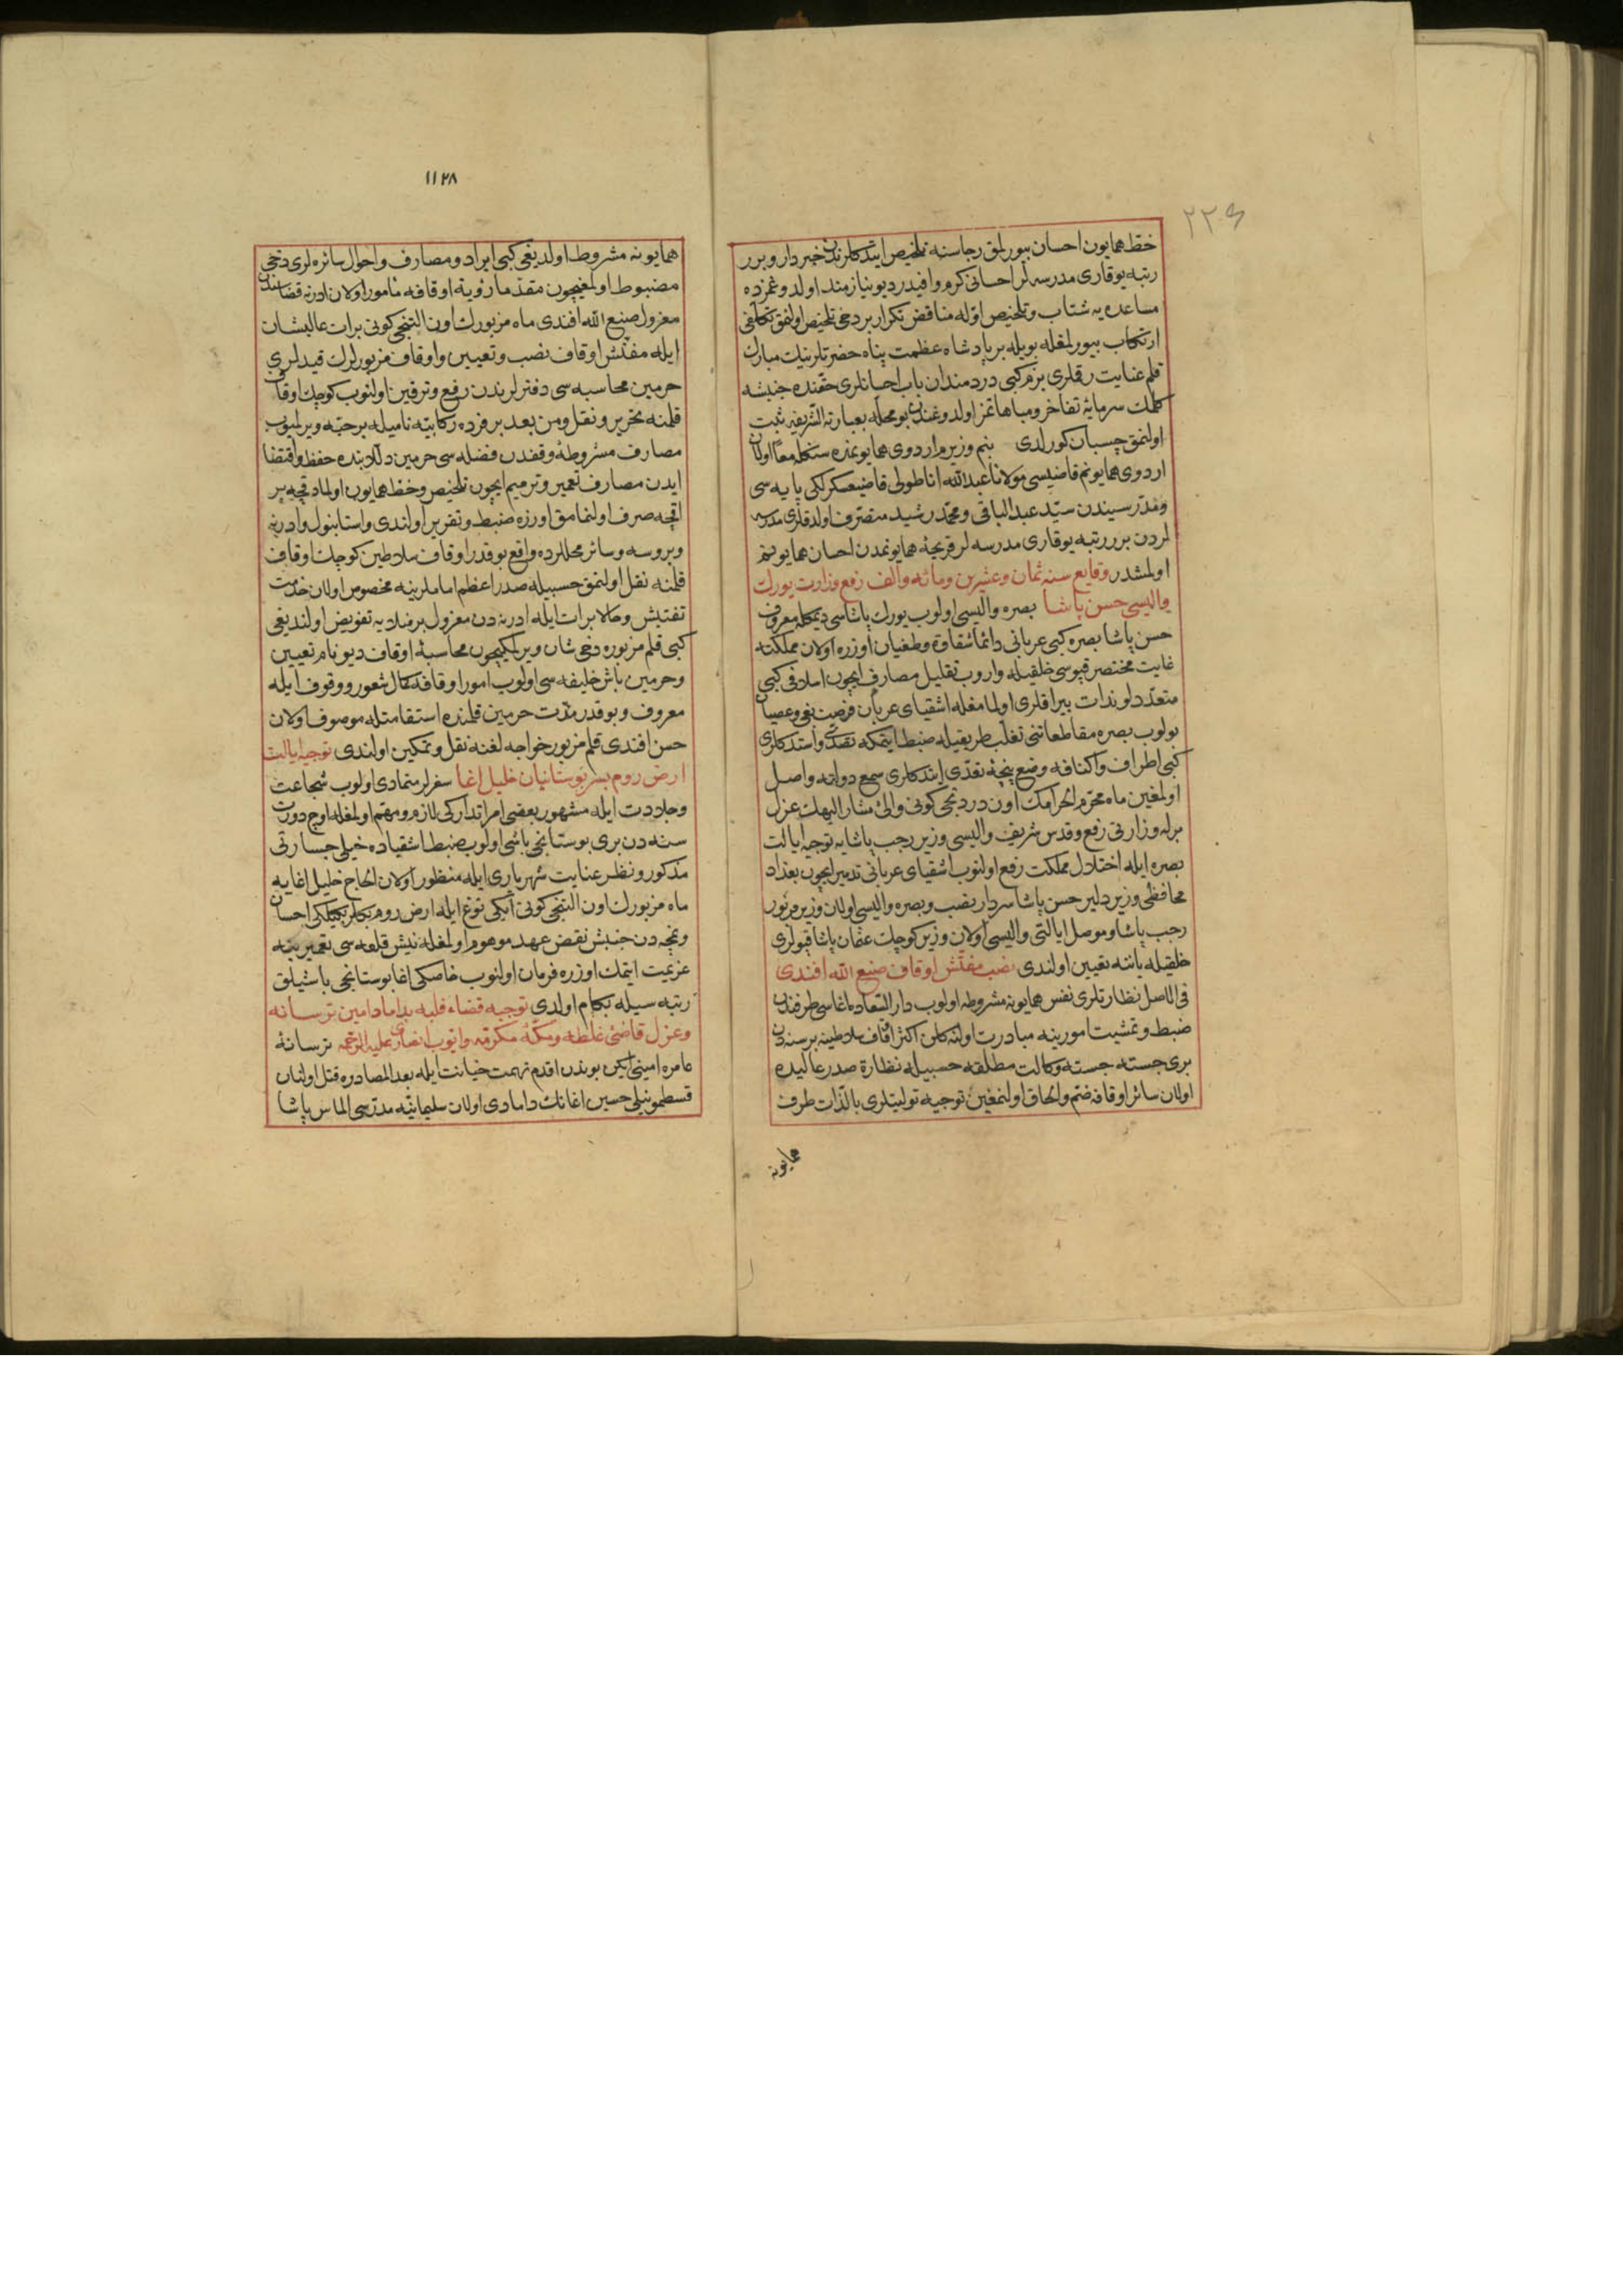 ٢٢٤
خط همایون احسان بیورلمق رجاسنه تلخیص ایتدکلرندن خبردار و برر
رتبه یوقاری مدرسه لر احسانی کرم وافیدر دیو نیازمند اولدوغمزده
مساعده یه شتاب و تلخیص اوله مناقض تکرار بر دخی تلخیص اولنمق تکلفی
ارتکاب بیورلمغله بویله بر پادشاه عظمت پناه حضرتلرینك مبارك
قلم عنایت رقلری بزم کبی دردمندان باب احسانلری حقنده جنبشه
کلمك سرمایهٔ تفاخر و مباهاتمز اولدوغندن بو محله بعبارته الشریفه ثبت
اولنمق چسبان کورلدی بنم وزیرم اردوی همایونمده سنکله معا اولان
اردوی همایونم قاضیسی مولانا عبدالله اناطولی قاضیعسکرلکی پایه سی
ومدرسیندن سید عبدالباقی و محمد رشید متصرف اولدقلری مدرسه
لردن برر رتبه یوقاری مدرسه لر قریحهٔ همایونمدن احسان همایونم
اولمشدر وقایع سنه ثمان وعشرین ومائه والف رفع وزارت یورك
والیسی حسن پاشا بصره والیسی اولوب یورك پاشاسی دیمکله معروف
حسن پاشا بصره کبی عربانی دائما شقاوة و طغیان اوزره اولان مملکته
غایت مختصر قپوسی خلقیله واروب تقلیل مصارف ایچون اسلافی کبی
متعدد لوندات بیراقلری اولمامغله اشقیای عربان فرصت بغی و عصیان
بولوب بصره مقاطعاتنی تغلب طریقیله ضبط ایتمکه تصدی و استدکلری
کبی اطراف و اکنافه وضع پنجهٔ تعدی ایتدکلری سمع دولته واصل
اولمغین ماه محرم الحرامك اون دردنجی کونی والئ مشار الیهك عزل
برله وزارتی رفع و قدس شریف والیسی وزیر رجب پاشایه توجیه ایالت
بصره ایله اختلال مملکت رفع اولنوب اشقیای عربانی تدمیر ایچون بغداد
محافظی وزیر دلیر حسن پاشا سردار نصب و بصره والیسی اولان وزیر مزبور
رجب پاشا و موصل ایالتی والیسی اولان وزیر کوچك عثمان پاشا قپولری
خلقیله یاننه تعیین اولندی نصب مفتش اوقاف صنع الله افندی
فی الاصل نظارتلری نفس همایونه مشروطه اولوب دار السعاده اغاسی طرفندن
ضبط و تمشیت امورینه مبادرت اولنه کلن اکثر اوقاف سلاطینه برسنه دن
بری جسته جسته وکالت مطلقه حسبیله نظارة صدر عالیده
اولان سائر اوقافه ضم و الحاق اولنمغین توجیه تولیتلری بالذات طرف
همایونه
١١٢٨
همایونه مشروط اولدیغی کبی ایراد و مصارف و احوال سائره لری دخی
مضبوط اولمغیچون مقدما رؤیة اوقافه مأمور اولان ادرنه قضاسندن
معزول صنع الله افندی ماه مزبورك اون التنجی کونی برات عالیشان
ایله مفتش اوقاف نصب و تعیین و اوقاف مزبورلرك قیدلری
حرمین محاسبه سی دفترلرندن رفع و ترقین اولنوب کوچك اوقاف
قلمنه تحریر و نقل ومن بعد بر فرده رکابیه نامیله بر حبه ویرلمیوب
مصارف مشروطهٔ وقفدن فضله سی حرمین دولابنده حفظ و اقتضا
ایدن مصارف تعمیر و ترمیم ایچون تلخیص و خط همایون اولمادقچه بر
اقچه صرف اولنمامق اوزره ضبط و تقریر اولندی و استانبول و ادرنه
و بروسه و سائر محللرده واقع بو قدر اوقاف سلاطین کوچك اوقاف
قلمنه نقل اولنمق حسبیله صدر اعظم اماملرینه مخصوص اولان خدمت
تفتیش و حالا برات ایله ادرنه دن معزول بر منلایه تفویض اولندیغی
کبی قلم مزبوره دخی شان ویرلمکیچون محاسبهٔ اوقاف دیو نام تعیین
و حرمین باش خلیفه سی اولوب امور اوقافه کمال شعور و وقوف ایله
معروف و بو قدر مدت حرمین قلمنده استقامتله موصوف اولان
حسن افندی قلم مزبور خواجه لغنه نقل و تمکین اولندی توجیه ایالت
ارض روم بسر بوستانیان خلیل اغا سفرلر متمادی اولوب شجاعت
و جلادت ایله مشهور بعضی امرا تدارکی لازم و مهتم اولمغله اوچ درت
سنه دن بری بوستانجی باشی اولوب ضبط اشقیاده خیلی جسارتی
مذکور و نظر عنایت شهریاری ایله منظور اولان الحاج خلیل اغایه
ماه مزبورك اون التنجی کونی ایکی توغ ایله ارض روم بکلربکیلکی احسان
و نمچه دن جنبش نقض عهد موهوم اولمغله نیش قلعه سی تعمیرینه
عزیمت ایتمك اوزره فرمان اولنوب خاصکی اغا بوستانجی باشیلق
رتبه سیله بکام اولدی توجیه قضاء فلبه بداماد امین ترسانه
وعزل قاضئ غلطه ومکهٔ مکرمه وابوب انصاری علیه الرحمه ترسانهٔ
عامره امینی ایکن بوندن اقدم تهمت خیانت ایله بعد المصادره قتل اولنان
قسطمونیلی حسین اغانك دامادی اولان سلیمانیه مدرسی الماس پاشا